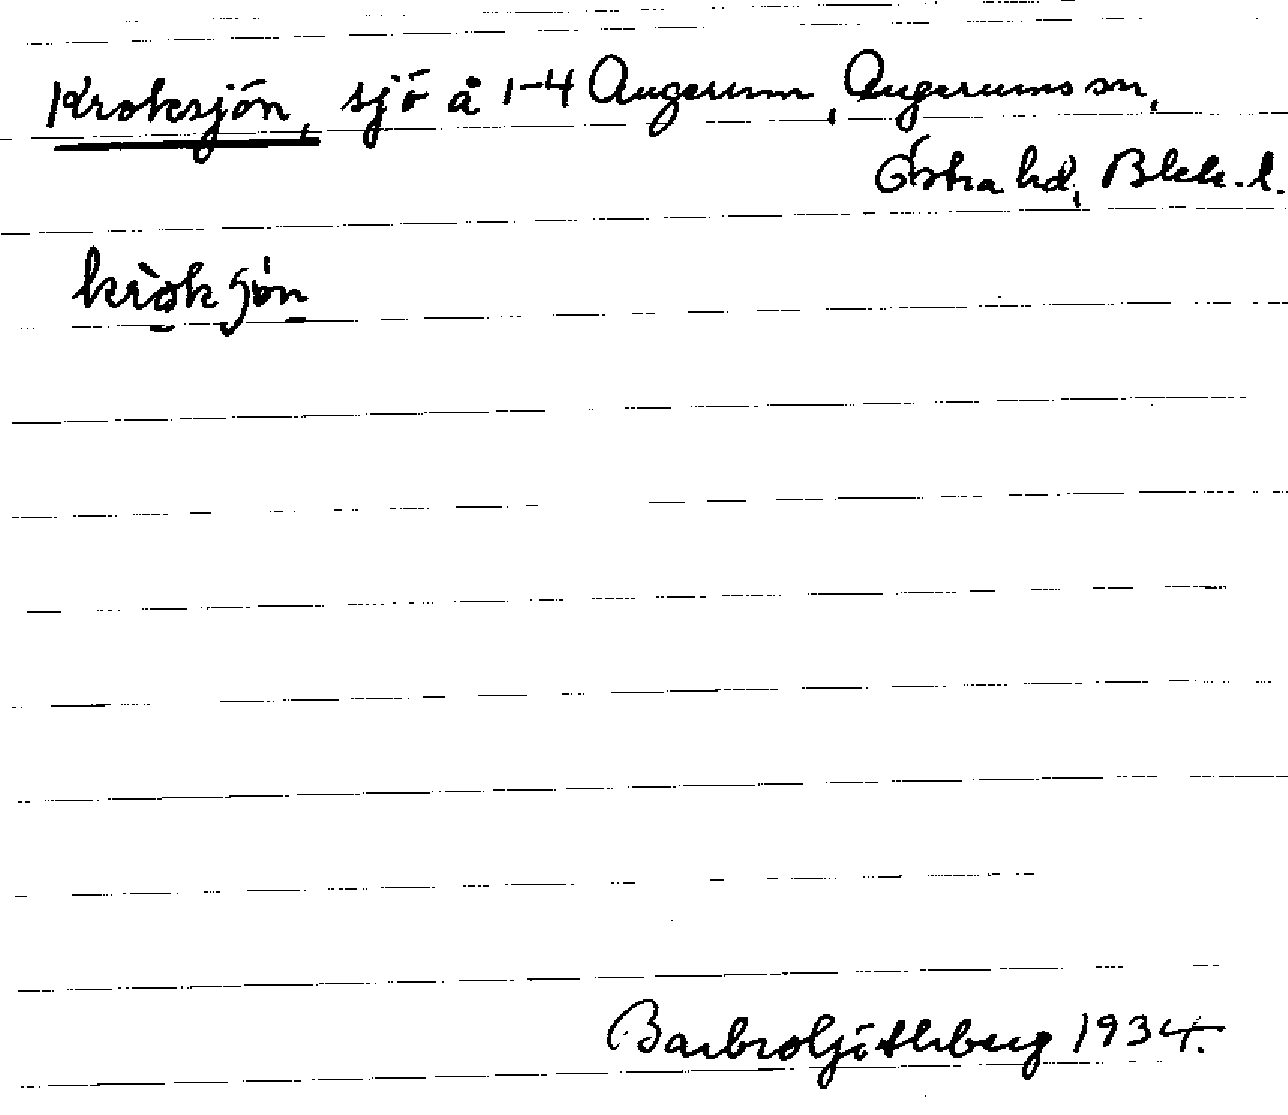 Kroksjön, sjö å 1-4 Augerum, Augerums sn,
Östra hd, Blek. l.
Barbro Göthberg 1934.